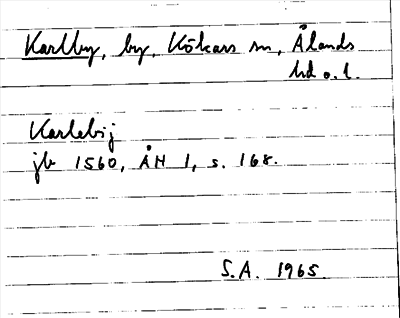 Karlby, by, Kökars sn, Ålands
hd o. l.
Karlebij
jb 1560, ÅH 1, s. 168.
S.A. 1965.